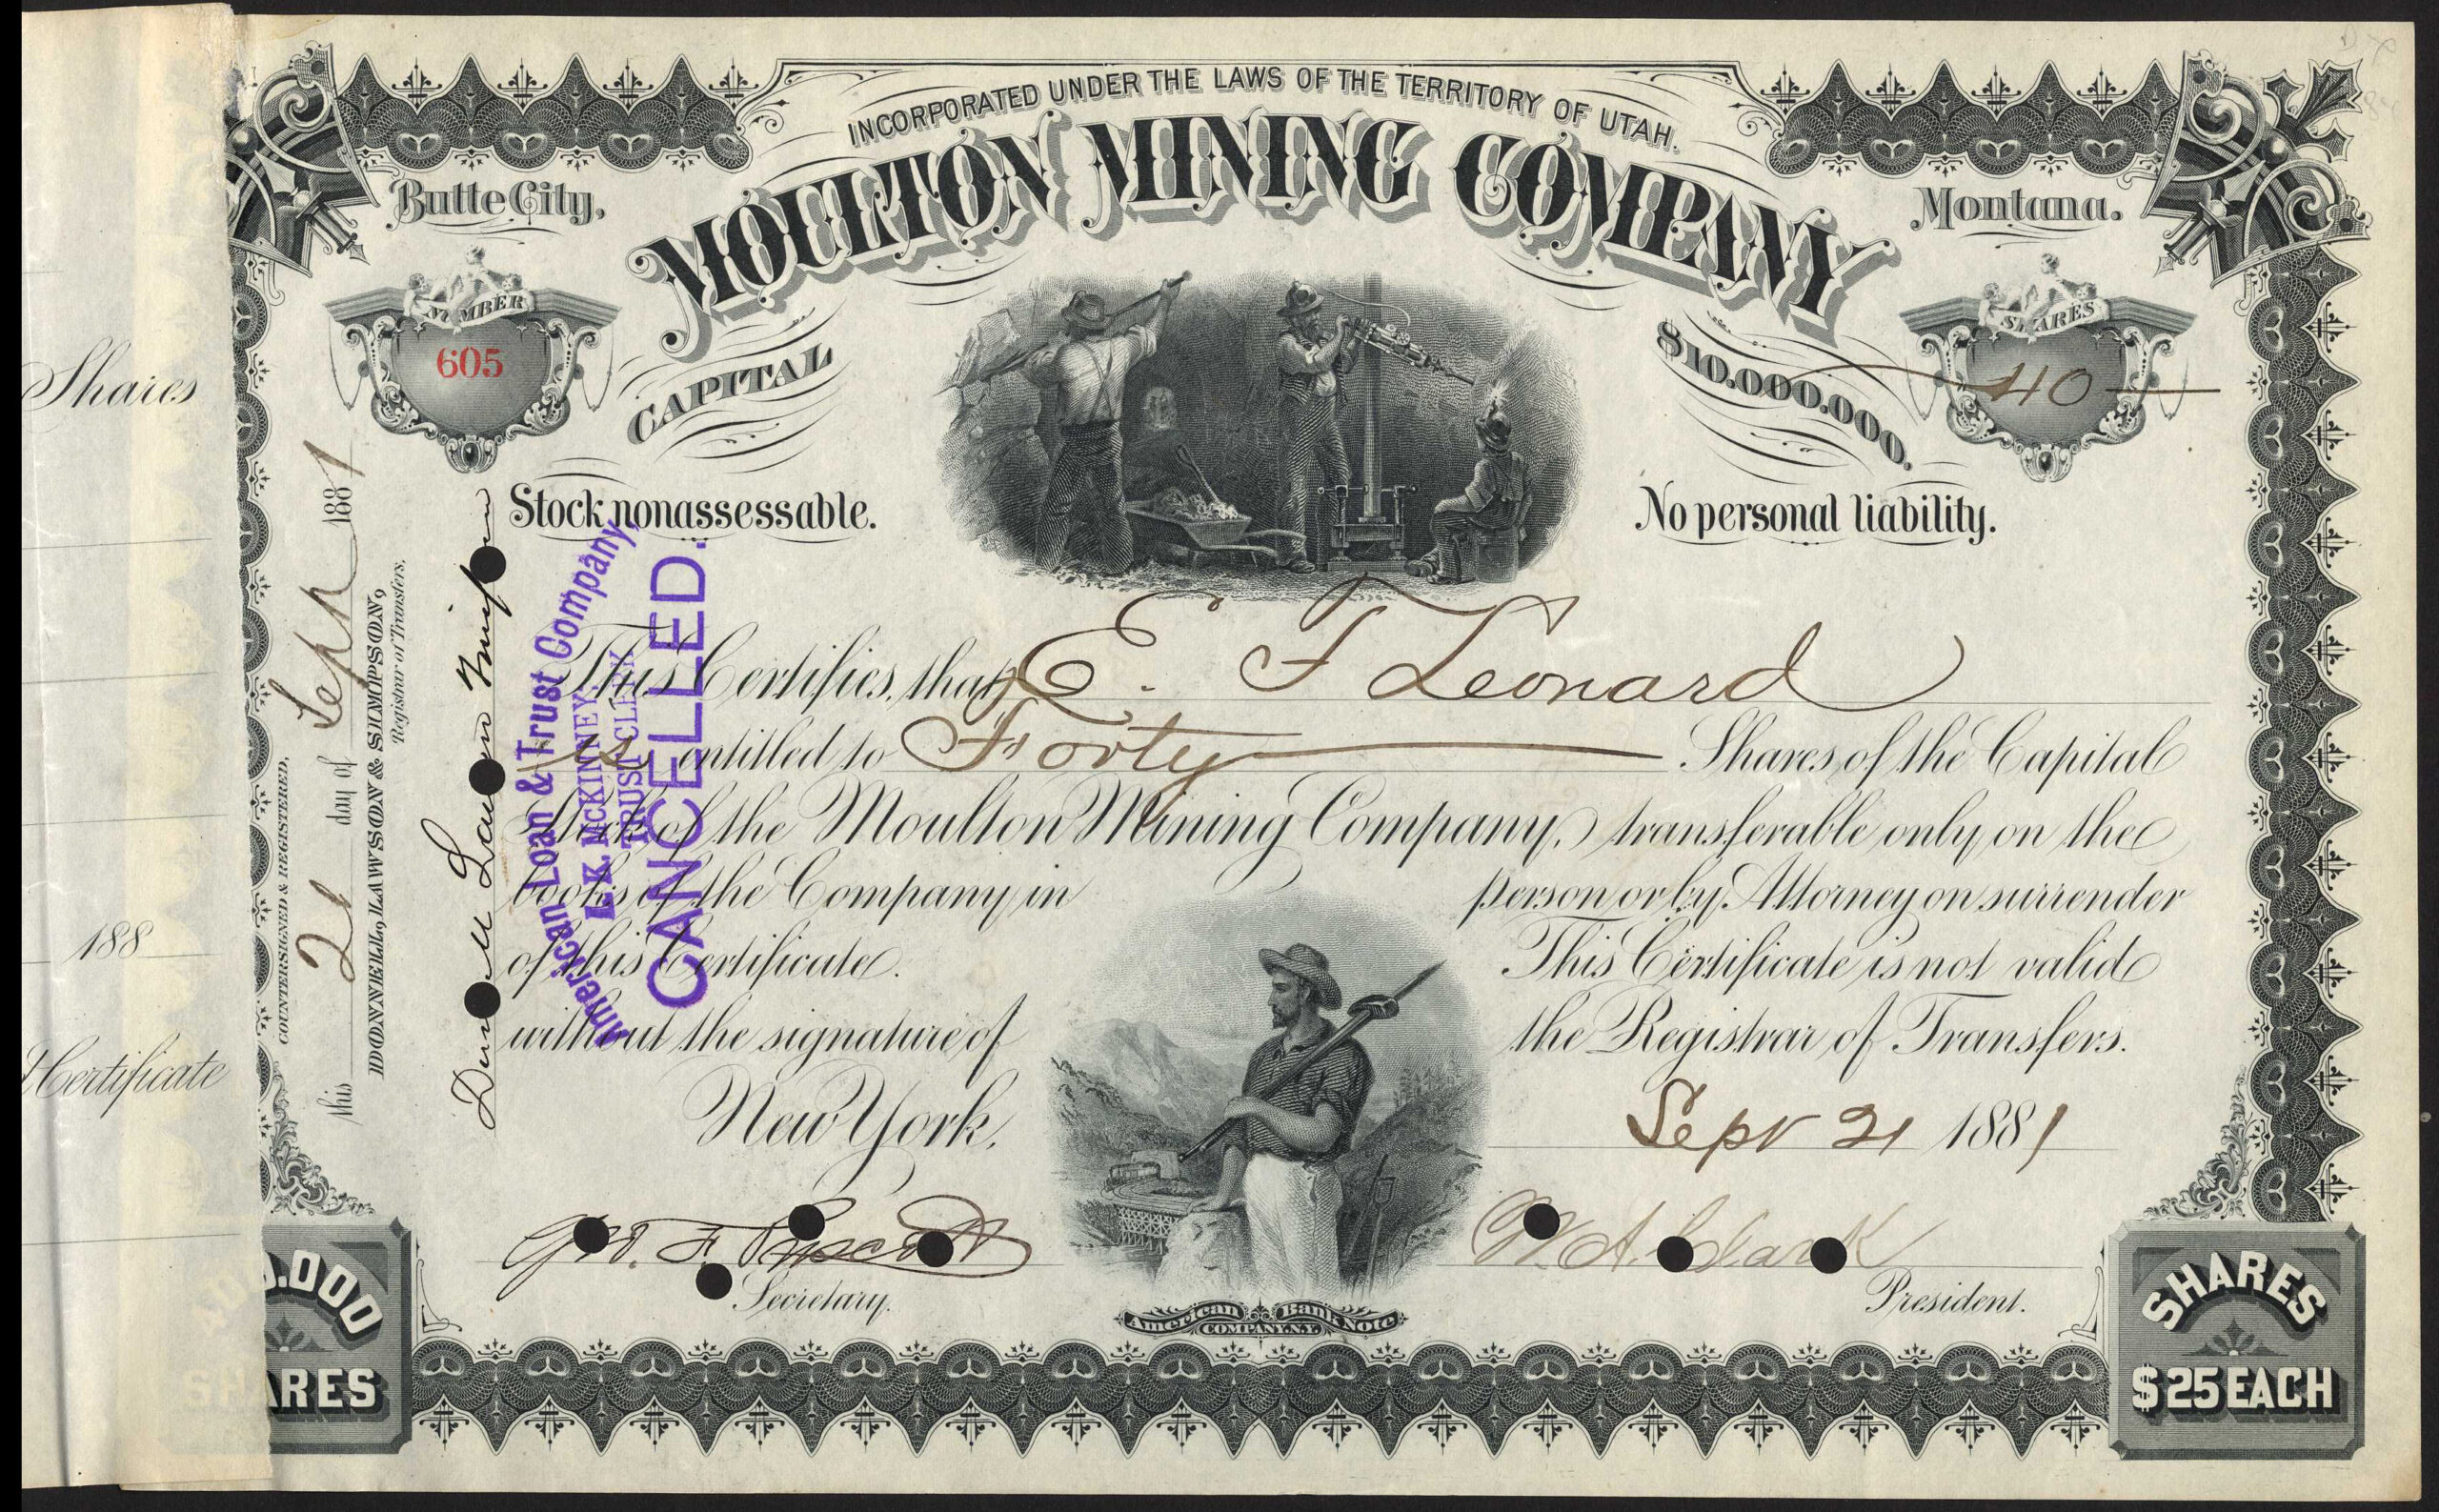 INCORPORATED UNDER THE LAWS OF THE TERRITORY OF UTAH.
Butte City,
MOULTON MINING COMPANY
Montana.
NUMBER
605
SHARES
40
CAPITAL
$10.000.000.
Stock nonassessable.
No personal liability.
Shares
188
Certificate
COUNTERSIGNED & REGISTERED,
this 21 day of Sept 1881
DONNELL, LAWSON & SIMPSON,
Registrar of Transfers.
Donnell Lawson Simpson
American Loan & Trust Company,
McKINNEY,
TRUST CLERK
CANCELLED.
This Certifies, that E. F Leonard
is entitled to Forty Shares of the Capital
Stock of the Moulton Mining Company, transferable only on the
books of the Company in person or by Attorney on surrender
of this Certificate. This Certificate is not valid
without the signature of the Registrar of Transfers.
New York, Sept 21 1881
Geo. F.
Secretary.
W. A. Clark
President.
American Bank Note
COMPANY. N.Y.
400.000
SHARES
SHARES
$25 EACH